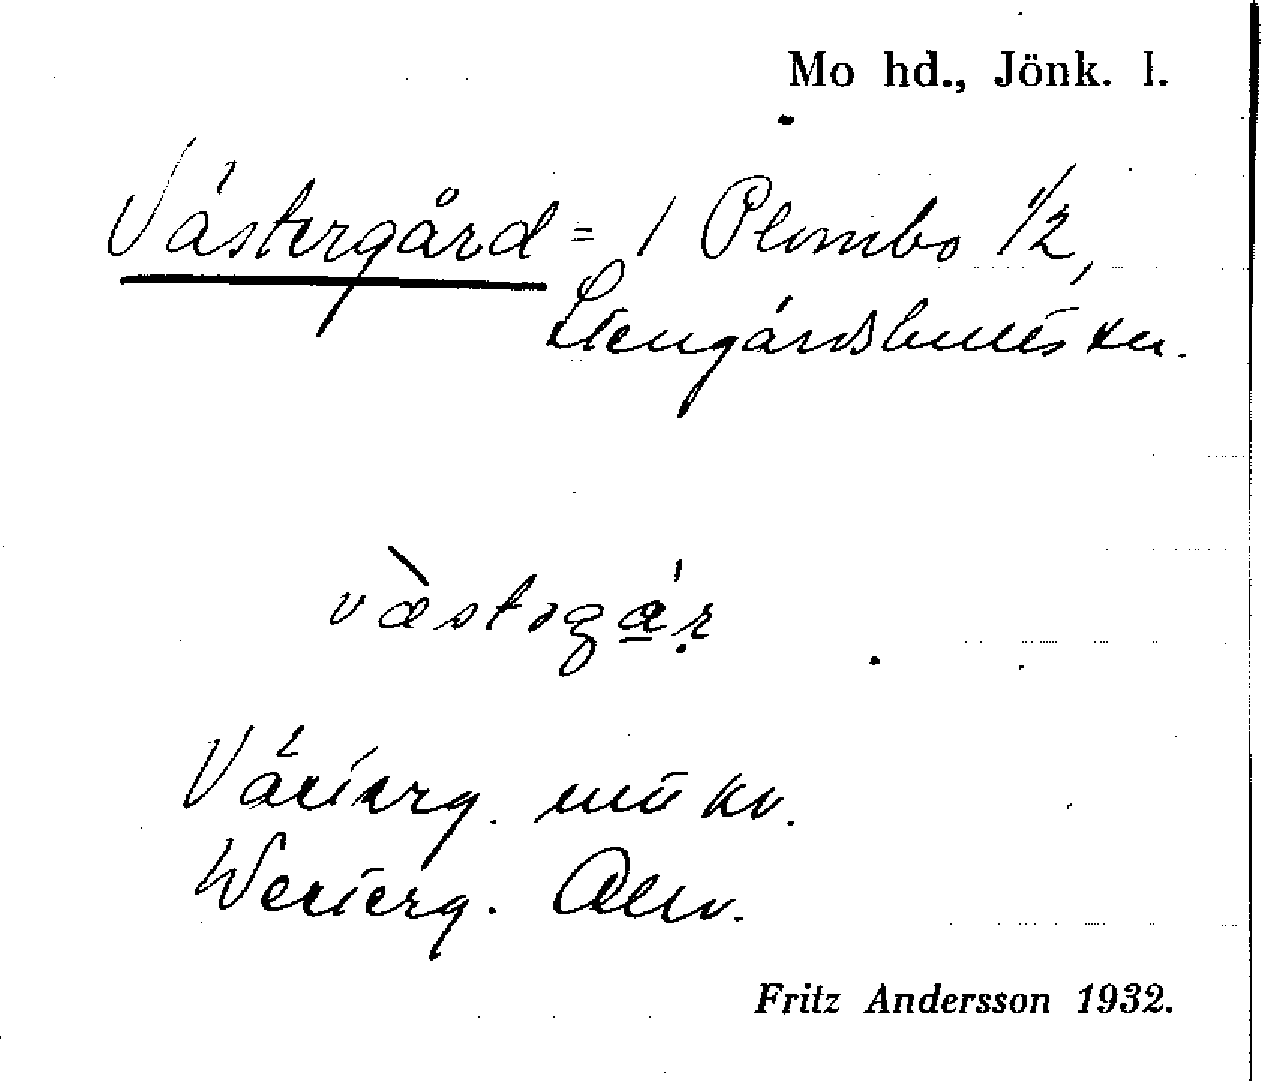 Mo hd., Jönk. l.
Västergård = 1 Plombo 1/2,
Stengårdshults sn.
væstəgár
Västerg. mtlkv.
Westerg.
Fritz Andersson 1932.